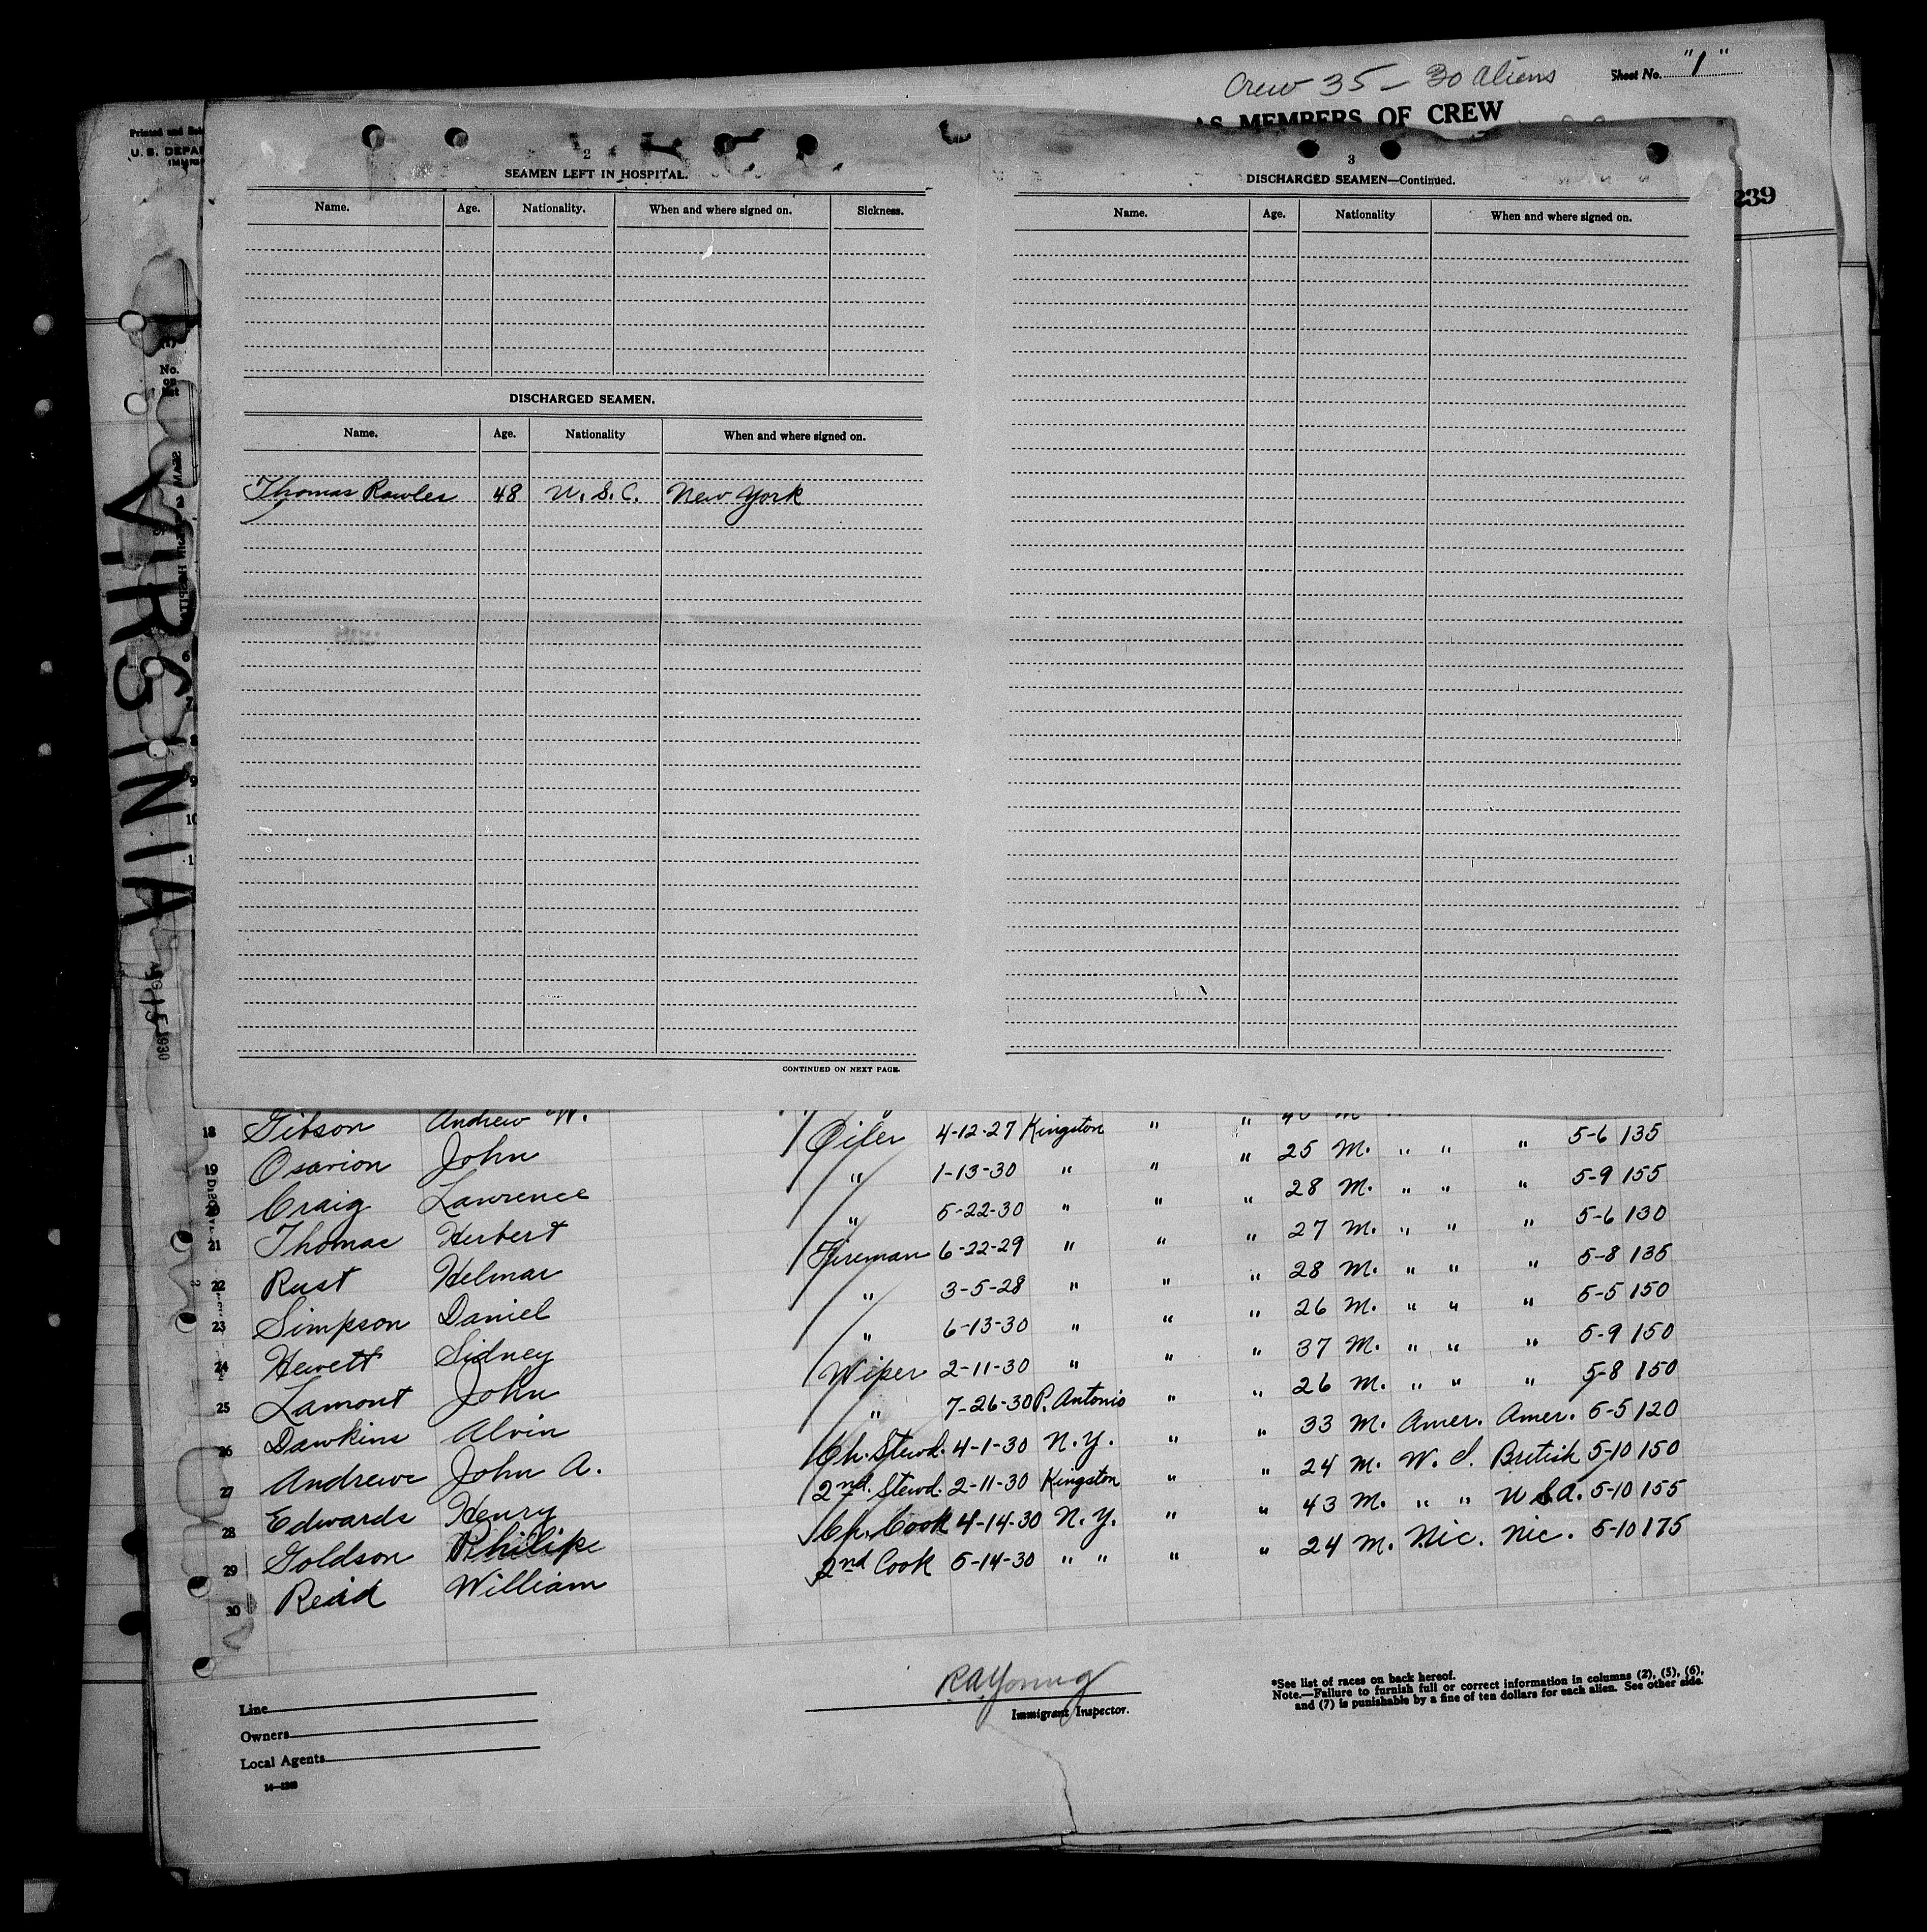 Crew 35 - 30 aliens
Sheet No. "1"
AS MEMBERS OF CREW
Printed and
U. S. DEPAR
239
2
SEAMEN LEFT IN HOSPITAL.
Name. Age. Nationality. When and where signed on. Sickness.
DISCHARGED SEAMEN.
Name. Age. Nationality When and where signed on.
Thomas Rawles 48 U. S. C. New York
CONTINUED ON NEXT PAGE.
3
DISCHARGED SEAMEN—Continued.
Name. Age. Nationality When and where signed on.
No.
on
list
VIRGINIA
6
9
10
18 Gibson Andrew W. Oiler 4-12-27 Kingston " " 25 M. " " " 5-6 135
19 Osarion John " 1-13-30 " " " 28 M. " " " 5-9 155
Craig Lawrence " 5-22-30 " " " 27 M. " " " 5-6 130
21 Thomas Herbert Fireman 6-22-29 " " " 28 M. " " " 5-8 135
22 Rust Helmar " 3-5-28 " " " 26 M. " " " 5-5 150
23 Simpson Daniel " 6-13-30 " " " 37 M. " " " 5-9 150
24 Hewett Sidney Wiper 2-11-30 " " " 26 M. " " " 5-8 150
25 Lamont John " 7-26-30 P. Antonio " " 33 M. Amer. Amer. 5-5 120
26 Dawkins Alvin Ch. Stewd. 4-1-30 N.Y. " " 24 M. W. I. British 5-10 150
27 Andrews John A. 2nd. Stewd. 2-11-30 Kingston " " 43 M. " " U.S.A. 5-10 155
28 Edwards Henry Ch. Cook 4-14-30 N.Y. " " 24 M. Nic. Nic. 5-10 175
29 Goldson Philipe 2nd Cook 5-14-30 " " " "
30 Reid William
Line
Owners
Local Agents
14—1240
R A Young
Immigrant Inspector.
*See list of races on back hereof.
Note.—Failure to furnish full or correct information in columns (2), (5), (6),
and (7) is punishable by a fine of ten dollars for each alien. See other side.